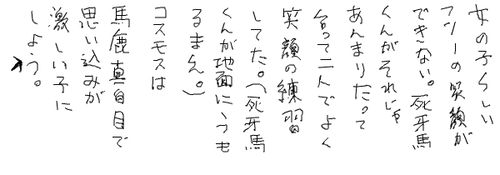 女の子らしい
フツーの笑顔が
できない。死牙馬
くんがそれじゃ
あんまりだって
言って二人でよく
笑顔の練習
してた。(死牙馬
くんが地面にうも
るまえ。)
コスモスは
馬鹿真面目で
思い込みが
激しい子に
しよう。